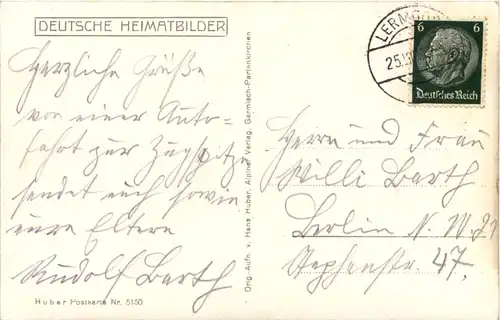 DEUTSCHE HEIMATBILDER
Herzliche Grüße
von einer Auto-
fahrt zur Zugspitze
sendet euch sowie
eure Eltern
Rudolf Barth
Huber Postkarte Nr. 5150
Orig.-Aufn. v. Hans Huber, Alpiner Verlag, Garmisch-Partenkirchen
LERMOOS
25.
6 6
Deutsches Reich
Herrn und Frau
Willi Barth
Berlin N. W. 21
Stephanstr. 47.